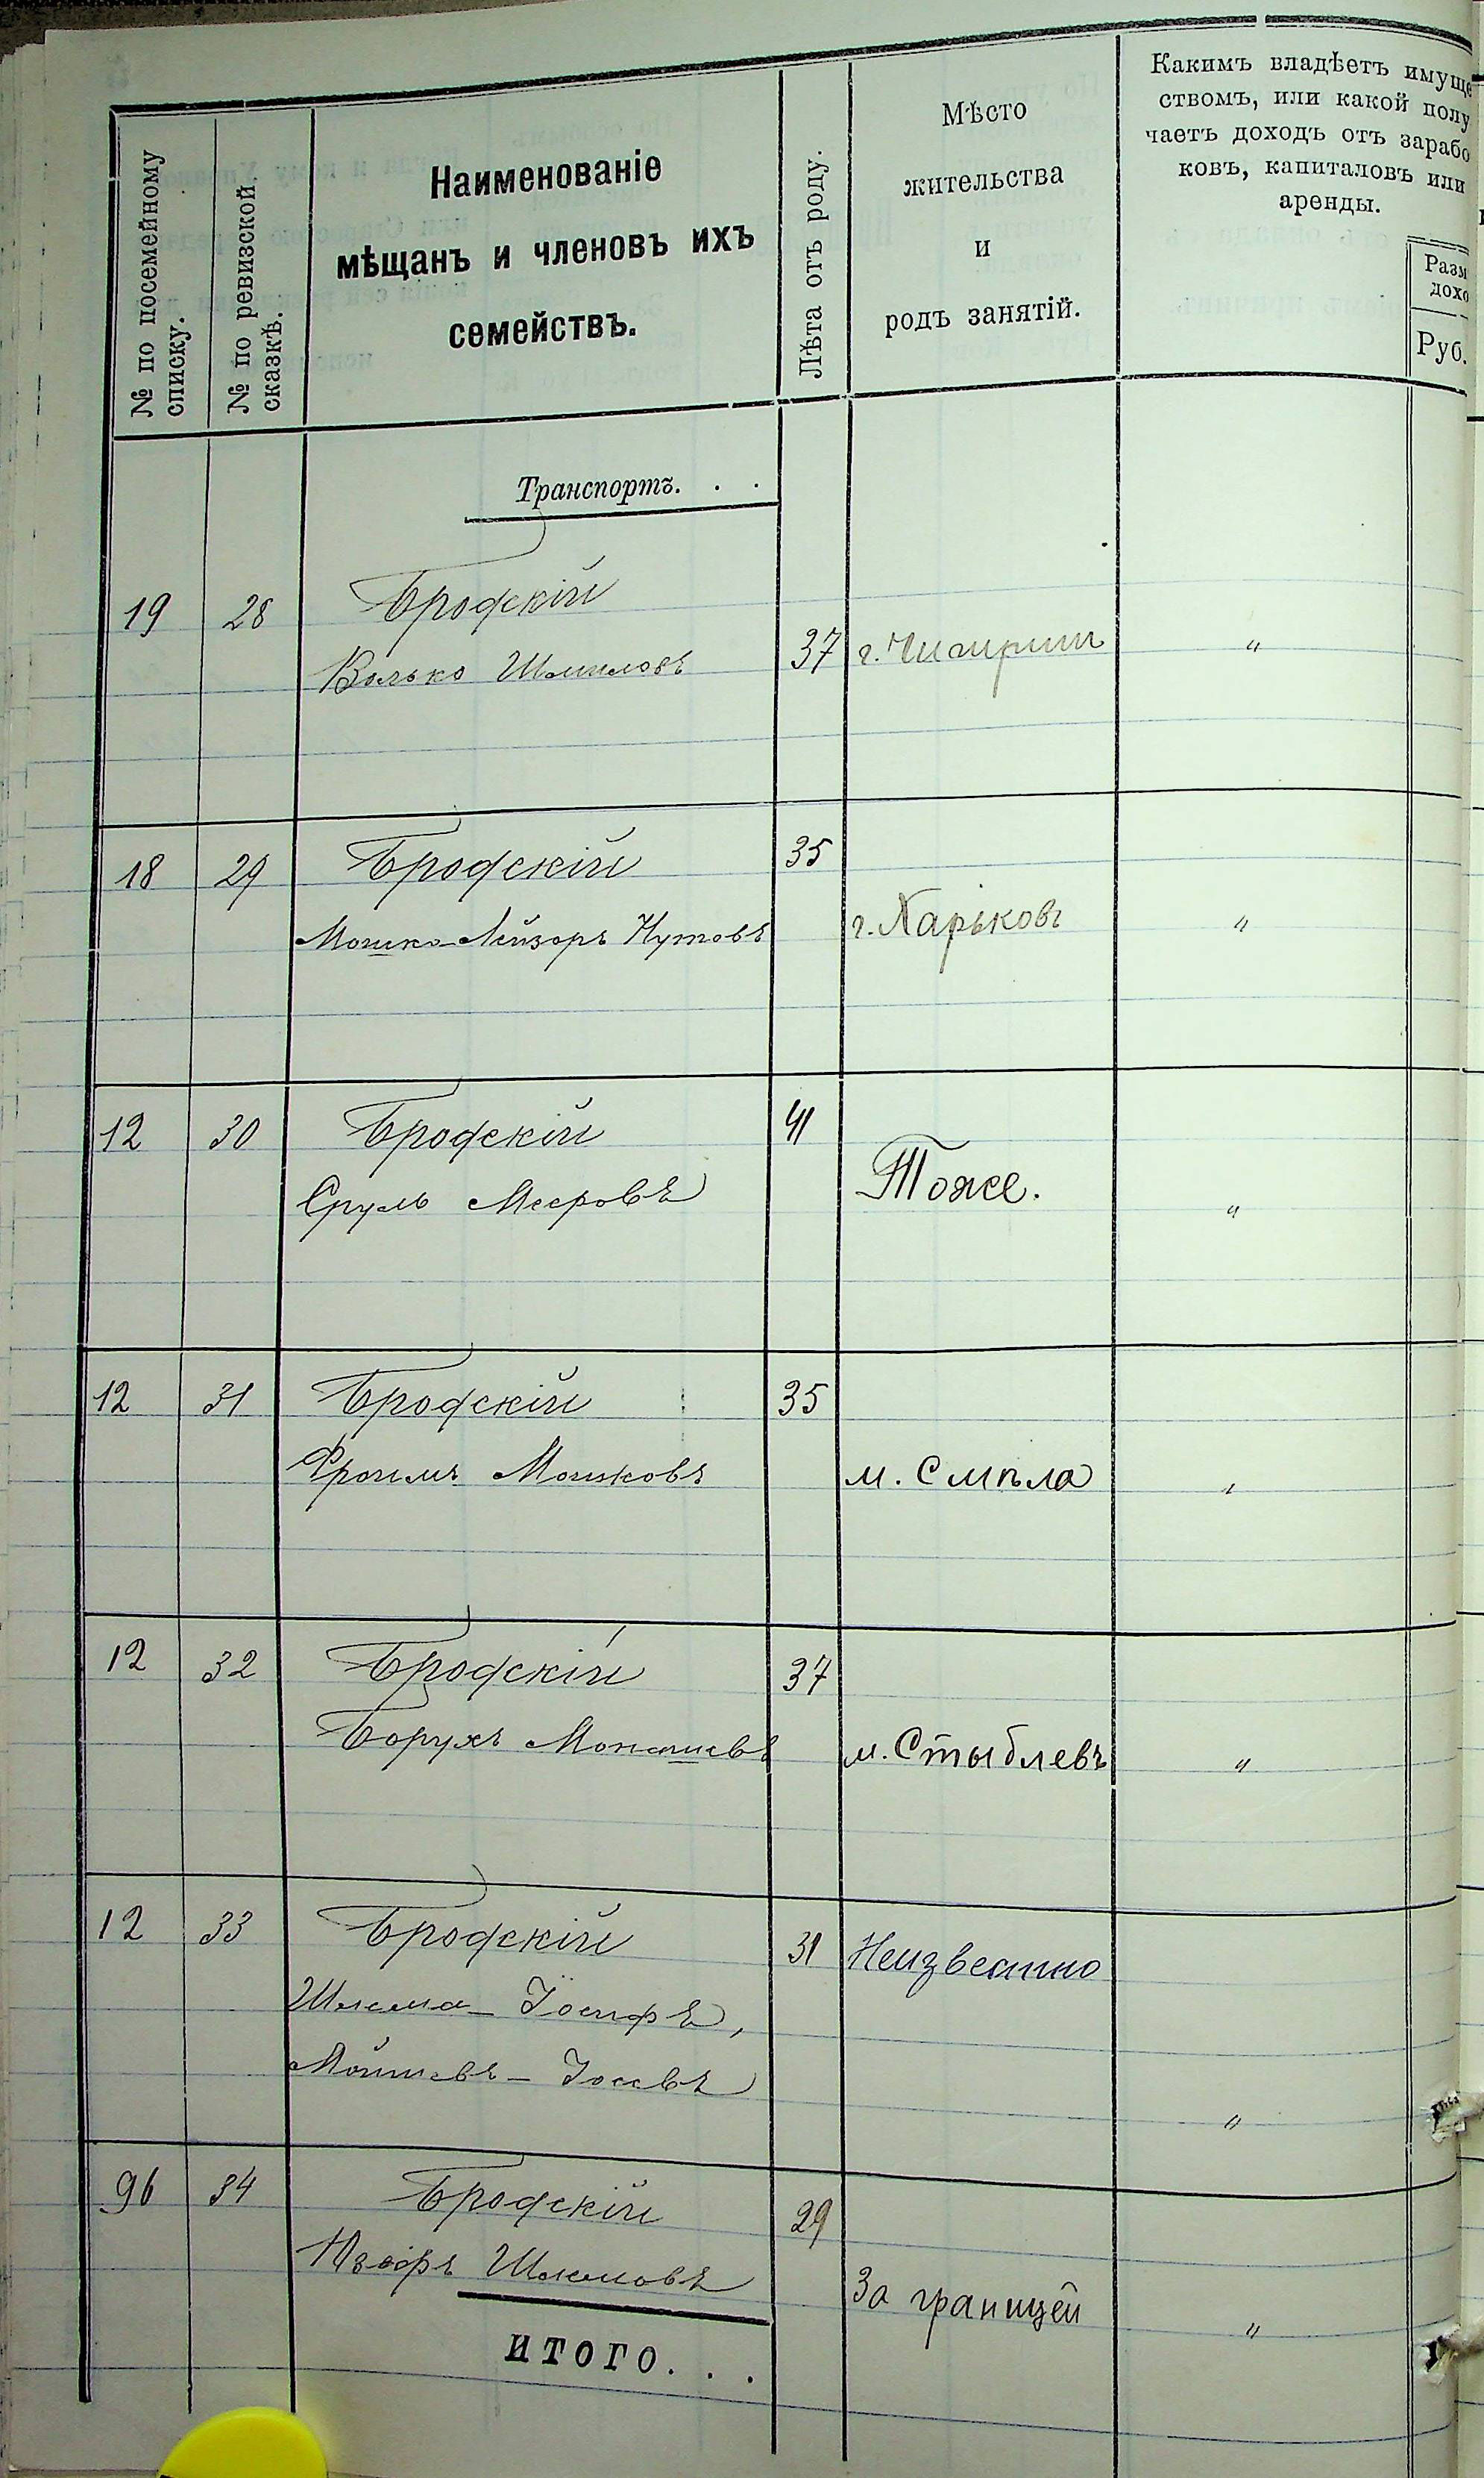 № по посемейному
списку.
№ по ревизской
сказкѣ.
Наименованіе
мѣщанъ и членовъ ихъ
семействъ.
Лѣта отъ роду.
Мѣсто
жительства
и
родъ занятій.
Какимъ владѣетъ имуще
ствомъ, или какой полу
чаетъ доходъ отъ зарабо
ковъ, капиталовъ или
аренды.
Разм
дохо
Руб.
Транспортъ. . .
19 28 Бродскій
Волько Шмиловъ 37 г. Чигирин "
18 29 Бродскій 35
Мошко-Лейзоръ Нутовъ г. Харьковъ "
12 30 Бродскій 41
Сруль Мееровъ Тоже. "
12 31 Бродскій 35
Фроимъ Мошковъ м. Смѣла "
12 32 Бродскій 37
Борухъ Монашевъ м. Стыблевъ "
12 33 Бродскій 31 Неизвестно
Шлема-Іосифъ,
Іосевъ "
96 34 Бродскій 29
Шлемовъ За границей "
ИТОГО. . .